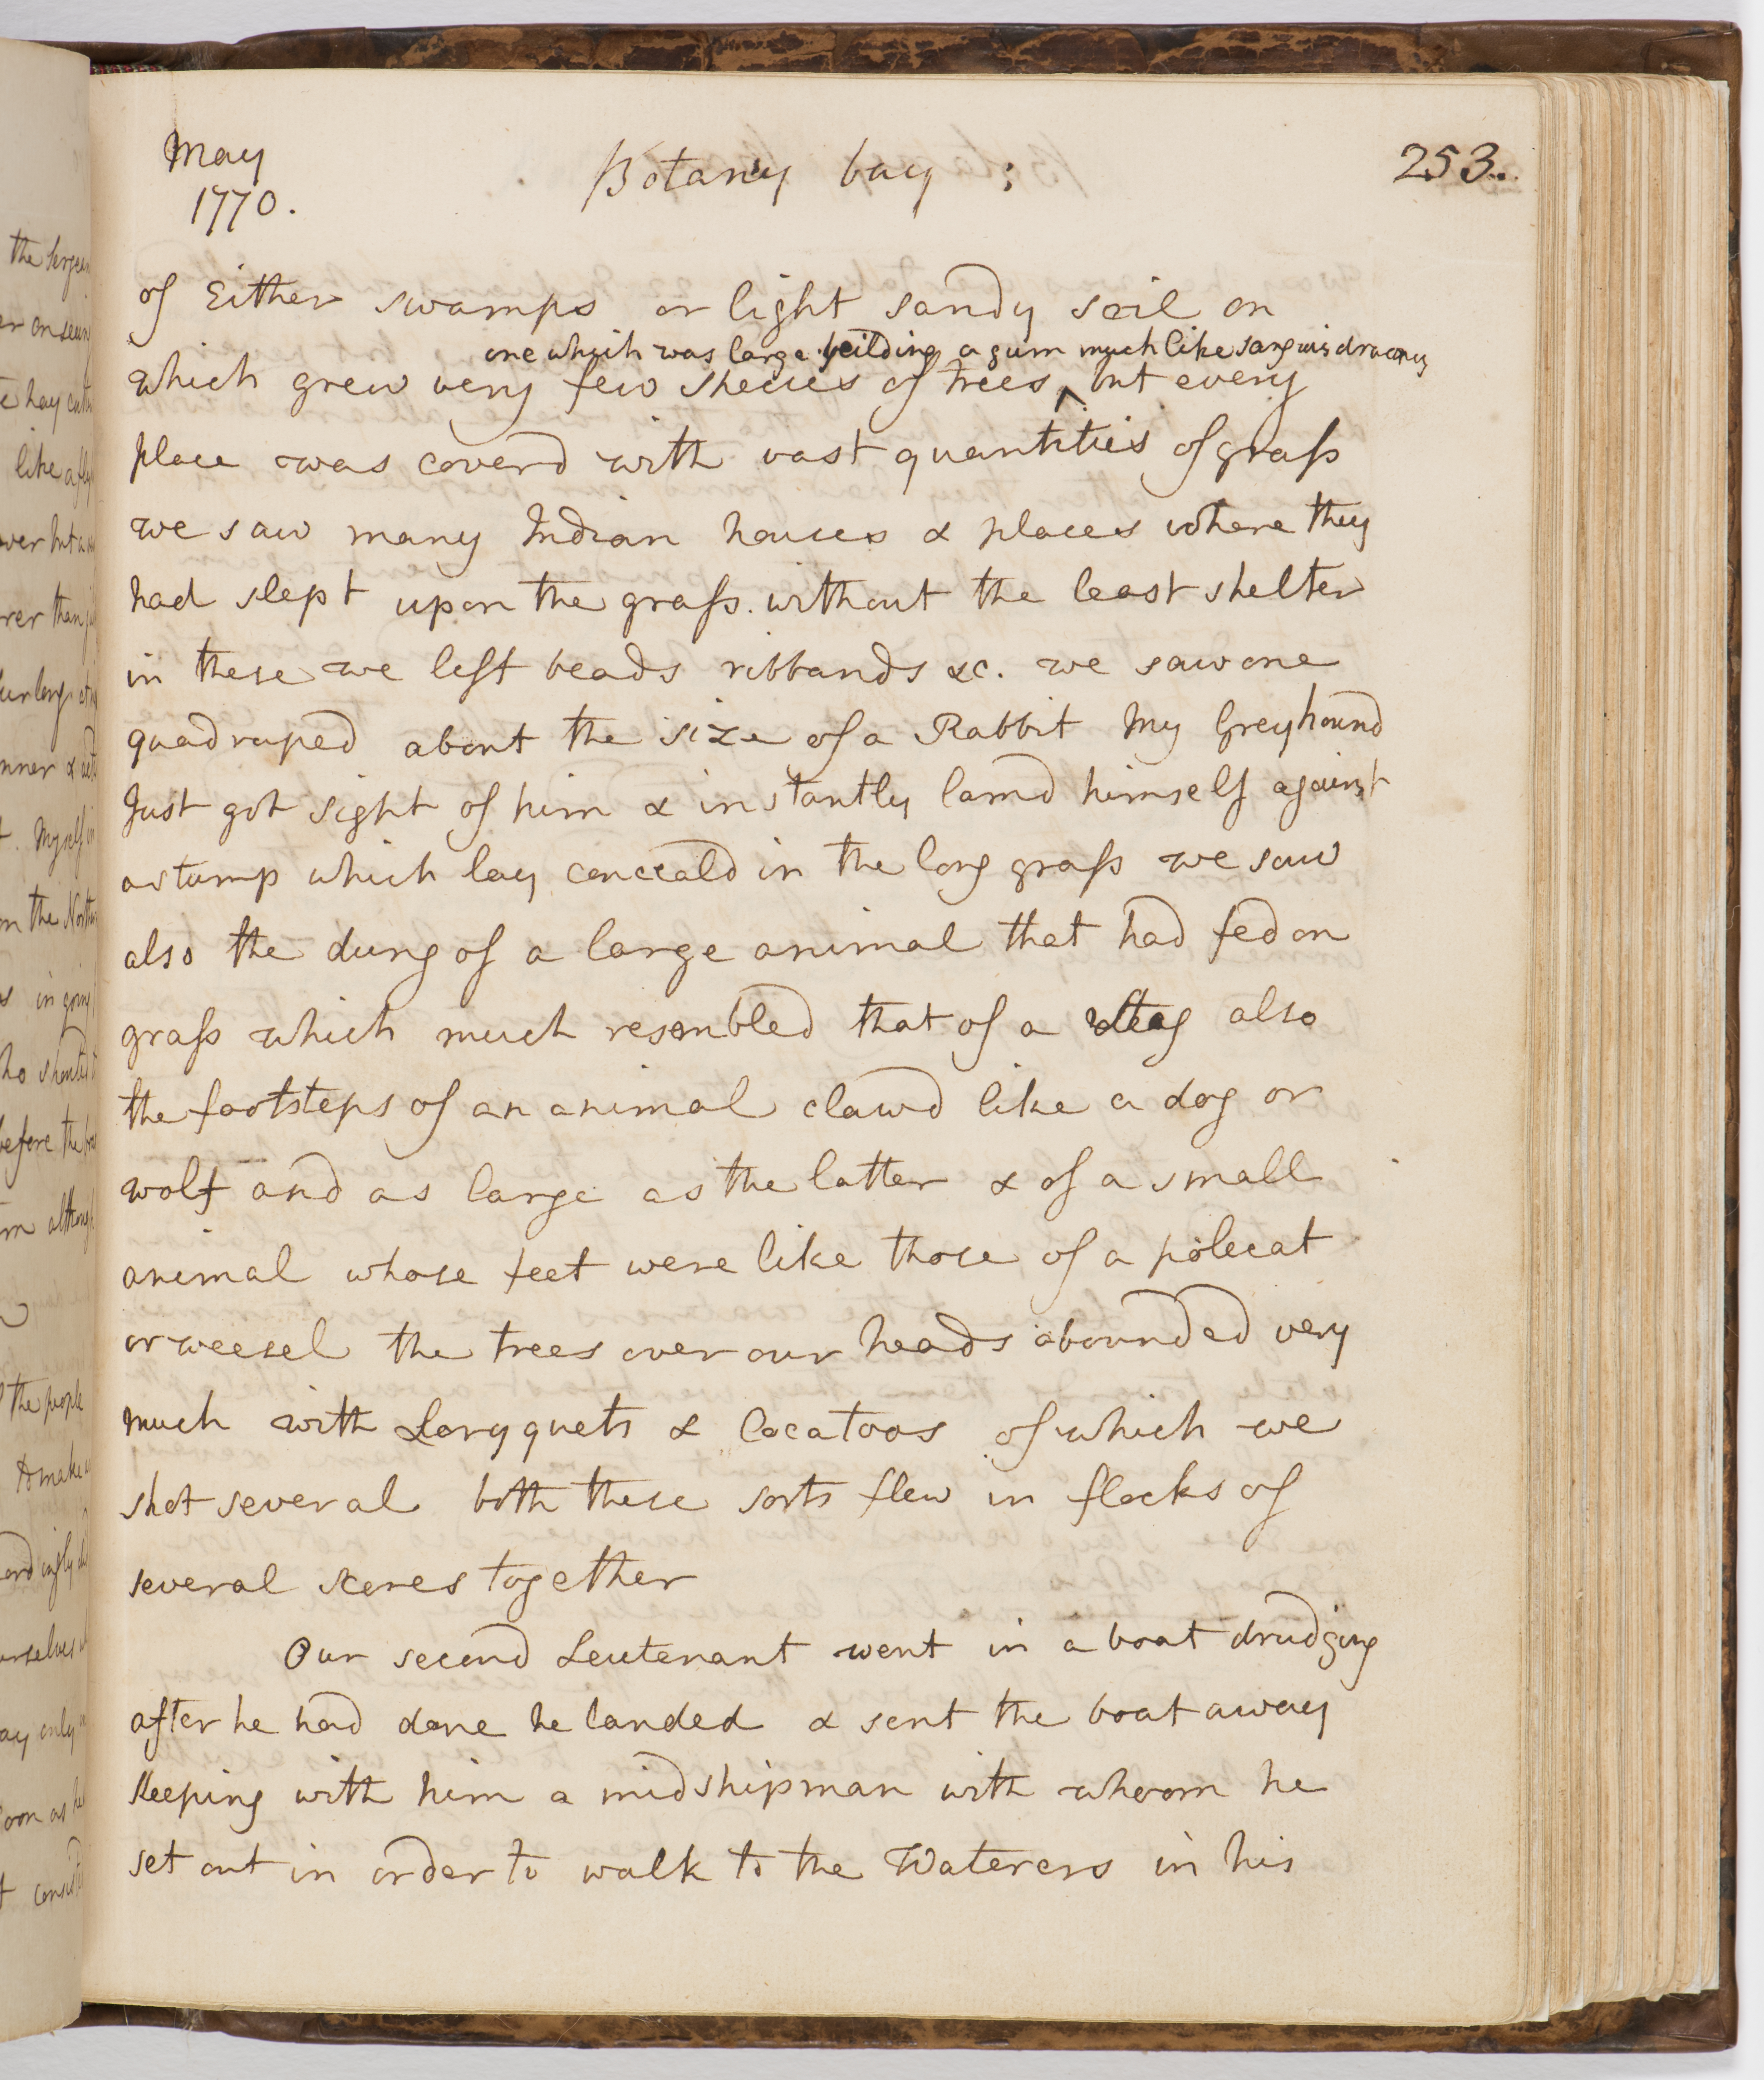 May
1770.
Botany bay ;
253.
of Either swamps or light sandy soil on
one which was large yeilding a gum much like sanguis draconis
which grew very few species of trees ^ but every
place was coverd with vast quantities of grass
we saw many Indian houses & places where they
had slept upon the grass. without the least shelter
in these we left beads ribbands &c. we saw one
quadruped about the size of a Rabbit My Greyhound
Just got sight of him & instantly lamd himself against
a stump which lay conceald in the long grass we saw
also the dung of a large animal that had fed on
grass which much resembled that of a stag also
the footsteps of an animal clawd like a dog or
wolf and as large as the latter & of a small
animal whose feet were like those of a polecat
or weesel the trees over our heads abounded very
much with Loryquets & Cocatoos of which we
shot several both these sorts flew in flocks of
several scores together
Our second Leutenant went in a boat drudging
after he had done he landed & sent the boat away
keeping with him a midshipman with whoom he
set out in order to walk to the Waterers in his
the
er on
like a
over but
rer than
nner &
t. Myself
in the
in
ho
before the
m
the people
to make
ourselves
ay only
oon as